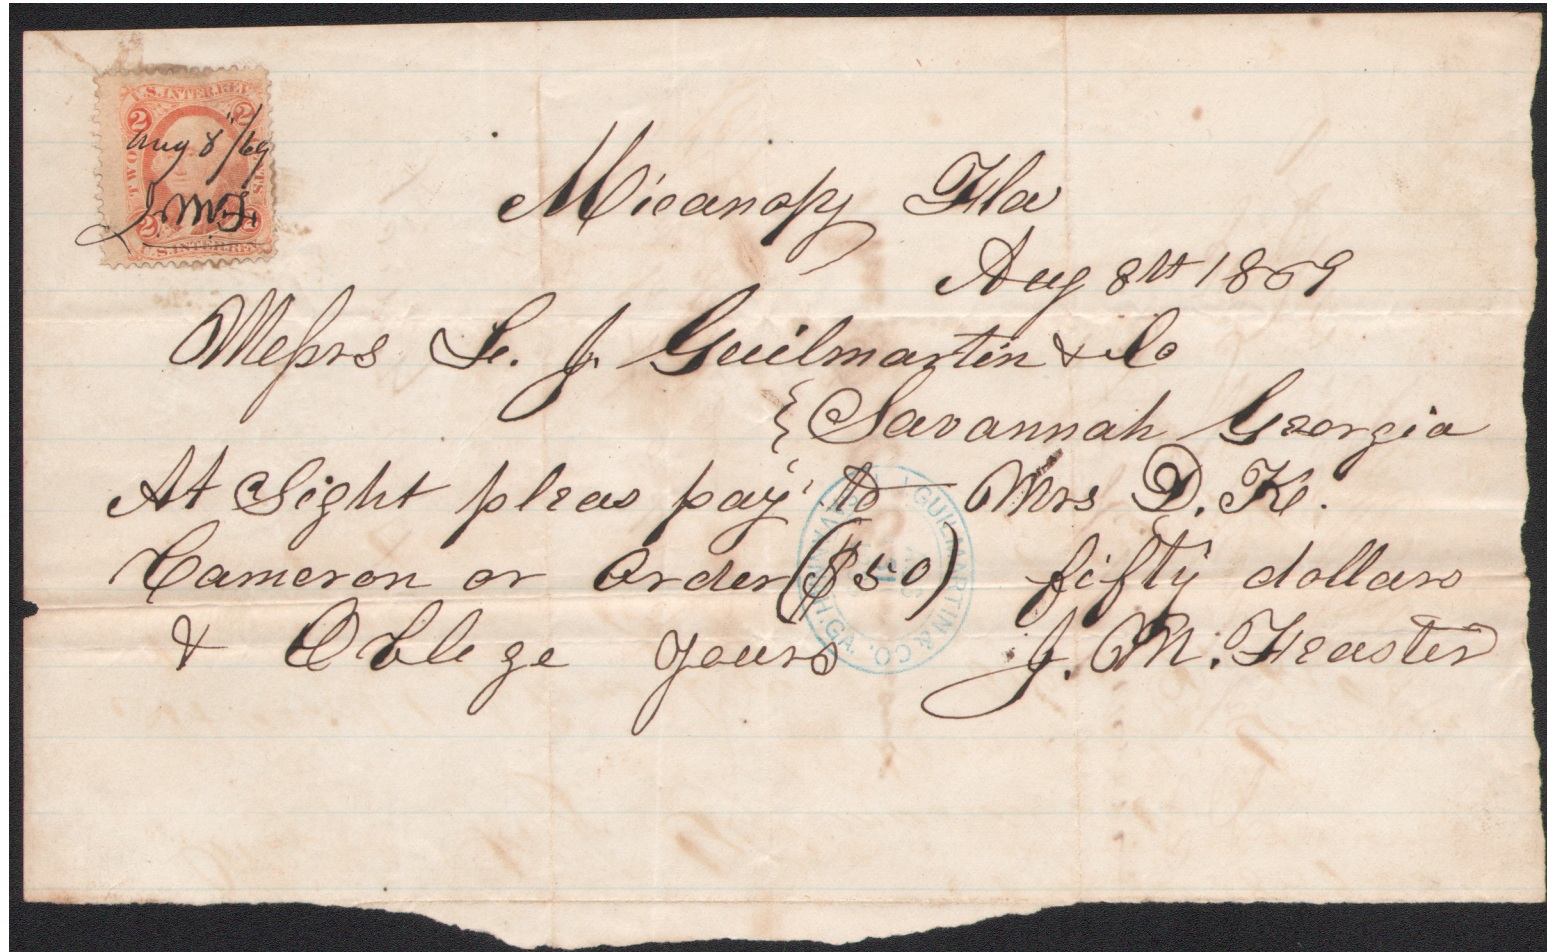 U.S. INTER. REV.
2 2
Aug 8th/69
J.M.F.
TWO CENTS
2 2
U.S. INTER. REV.
Micanopy Fla
Aug 8th 1869
Messrs L. J. Guilmartin & Co
Savannah Georgia
At Sight pleas pay to Mrs D. K.
Cameron or order ($50) fifty dollars
& Oblege yours J. M. Feaster
GUILMARTIN & CO. SAVANNAH, GA.